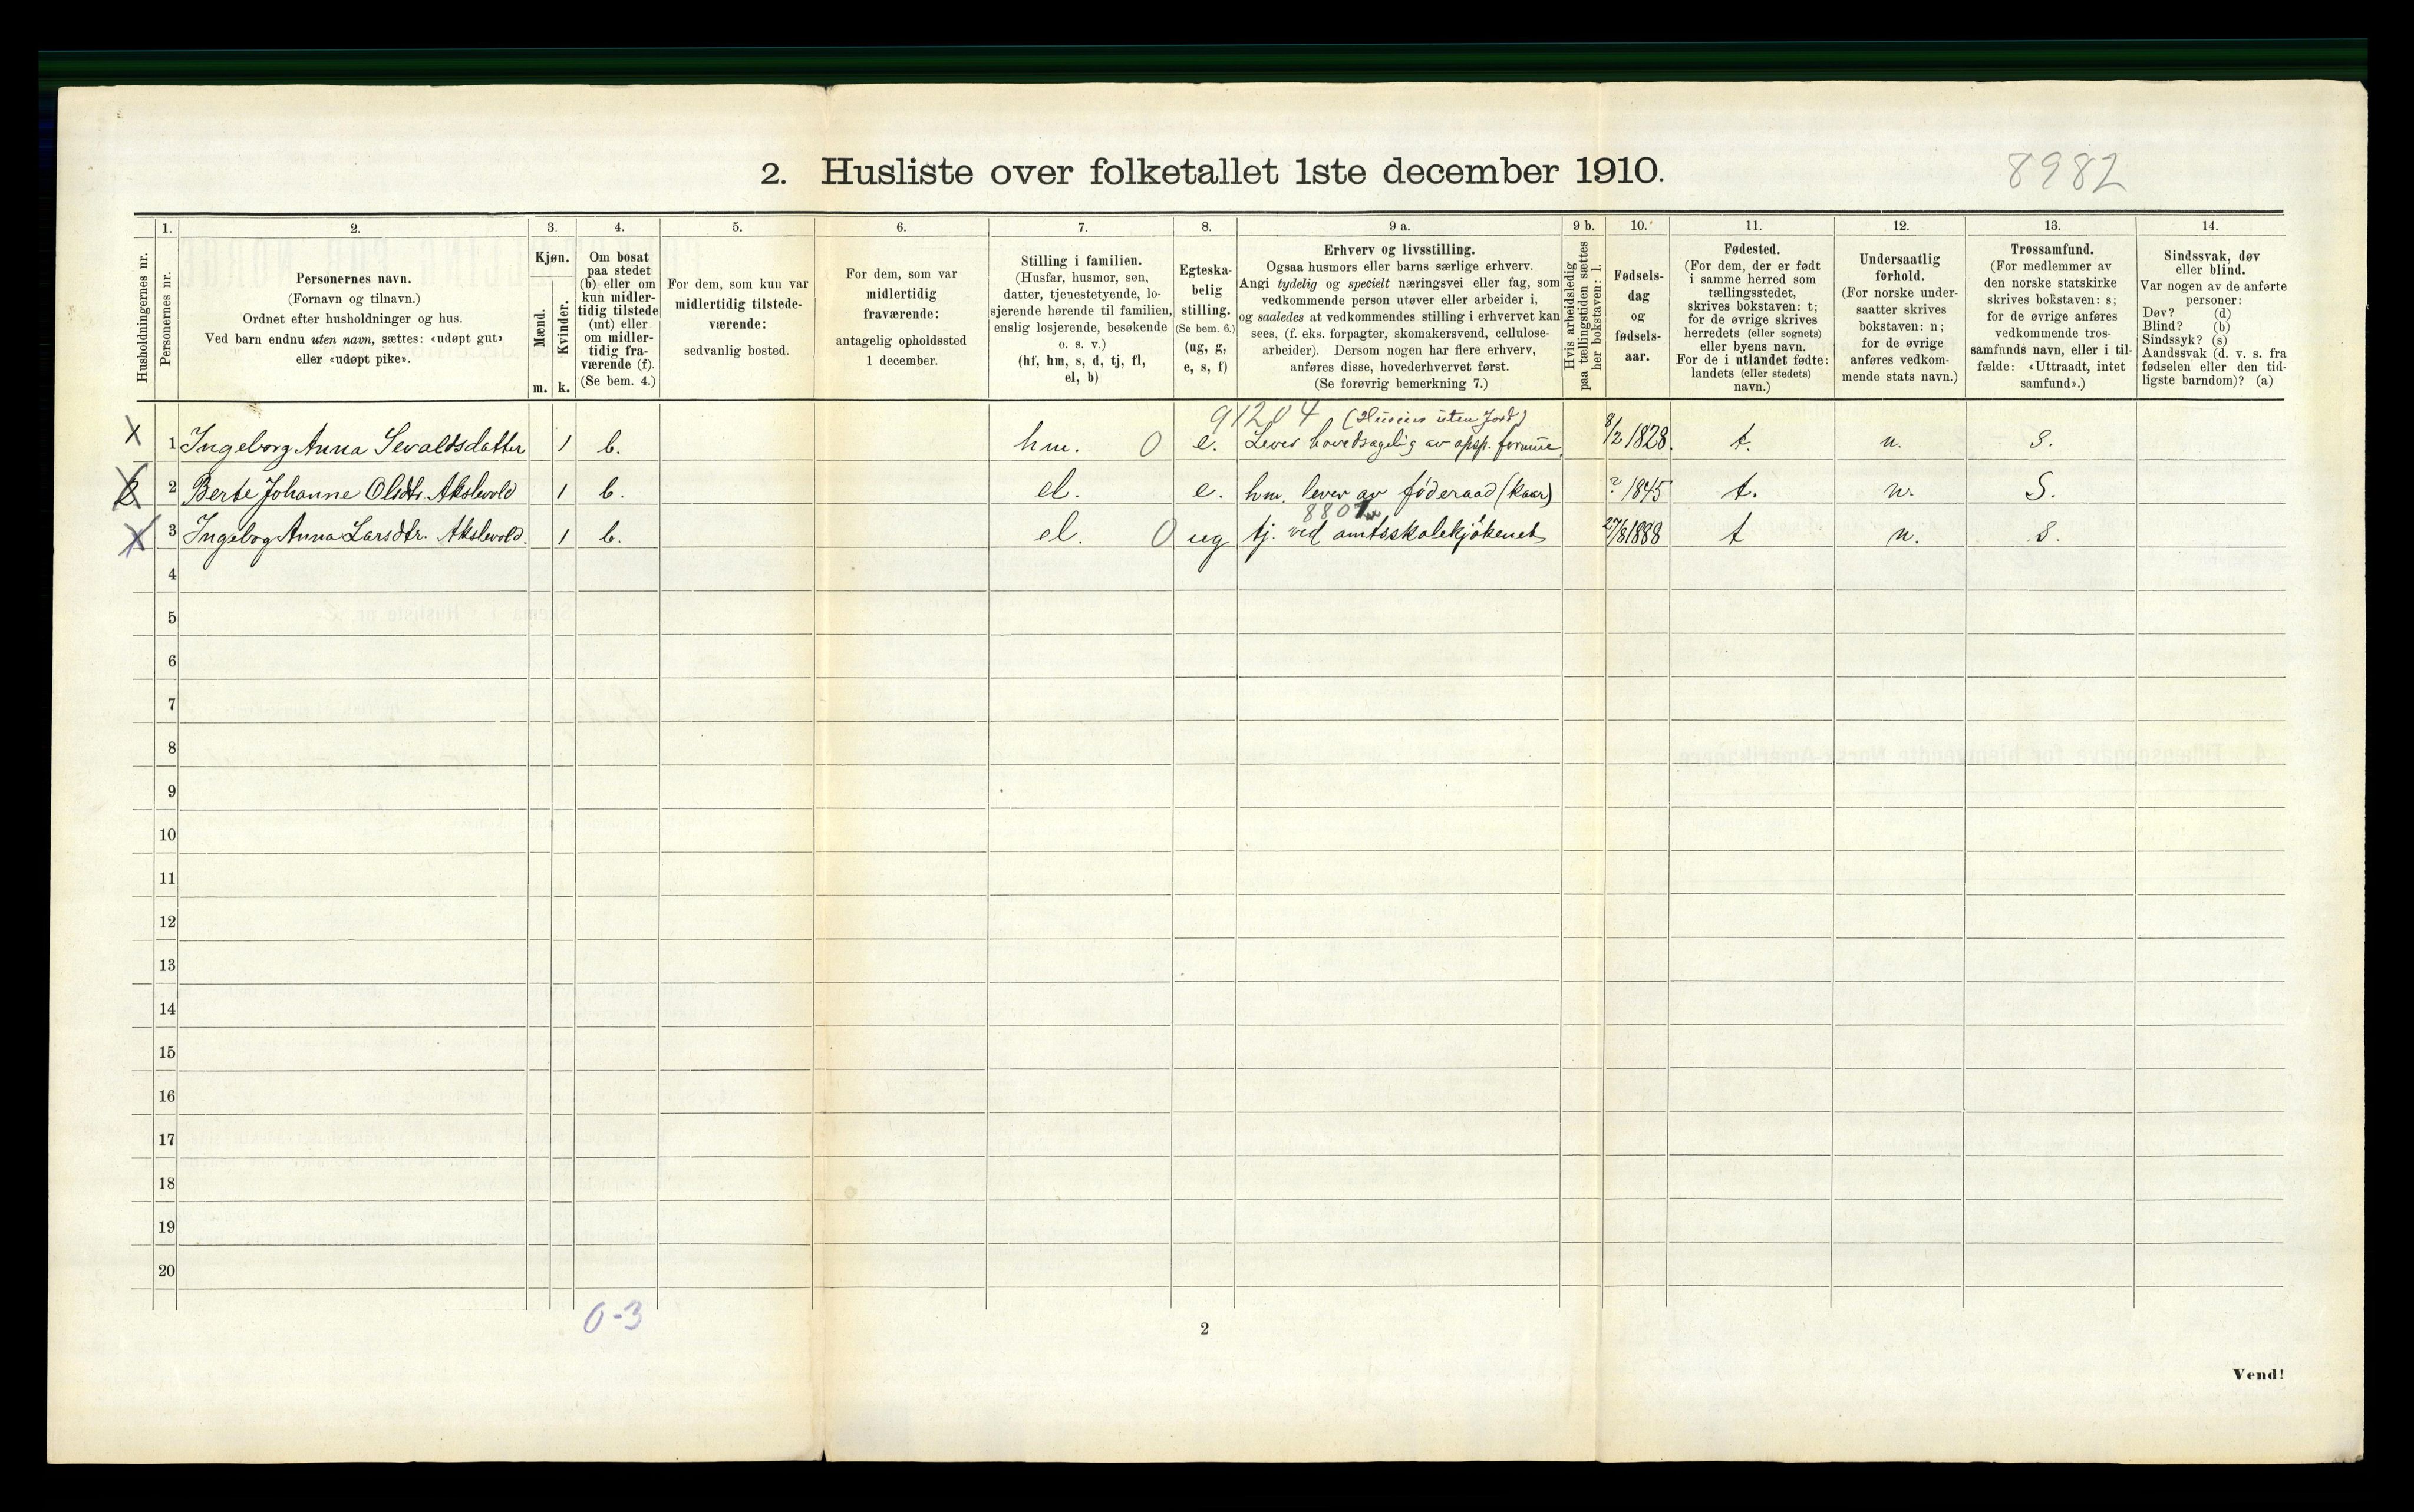 2. Husliste over folketallet 1ste december 1910.
8982
1. 2. 3. 4. 5. 6. 7. 8. 9 a. 9 b. 10. 11. 12. 13. 14.
Husholdningernes nr.
Personernes nr.
Personernes navn.
(Fornavn og tilnavn.)
Ordnet efter husholdninger og hus.
Ved barn endnu uten navn, sættes: «udøpt gut»
eller «udøpt pike».
Kjøn.
Mænd.
Kvinder.
m. k.
Om bosat
paa stedet
(b) eller om
kun midler-
tidig tilstede
(mt) eller
om midler-
tidig fra-
værende (f).
(Se bem. 4.)
For dem, som kun var
midlertidig tilstede-
værende:
sedvanlig bosted.
For dem, som var
midlertidig
fraværende:
antagelig opholdssted
1 december.
Stilling i familien.
(Husfar, husmor, søn,
datter, tjenestetyende, lo-
sjerende hørende til familien,
enslig losjerende, besøkende
o. s. v.)
(hf, hm, s, d, tj, fl,
el, b)
Egteska-
belig
stilling.
(Se bem. 6.)
(ug, g,
e, s, f)
Erhverv og livsstilling.
Ogsaa husmors eller barns særlige erhverv.
Angi tydelig og specielt næringsvei eller fag, som
vedkommende person utøver eller arbeider i,
og saaledes at vedkommendes stilling i erhvervet kan
sees, (f. eks. forpagter, skomakersvend, cellulose-
arbeider). Dersom nogen har flere erhverv,
anføres disse, hovederhvervet først.
(Se forøvrig bemerkning 7.)
Hvis arbeidsledig
paa tællingstiden sættes
her bokstaven: l.
Fødsels-
dag
og
fødsels-
aar.
Fødested.
(For dem, der er født
i samme herred som
tællingsstedet,
skrives bokstaven: t;
for de øvrige skrives
herredets (eller sognets)
eller byens navn.
For de i utlandet fødte:
landets (eller stedets)
navn.)
Undersaatlig
forhold.
(For norske under-
saatter skrives
bokstaven: n;
for de øvrige
anføres vedkom-
mende stats navn.)
Trossamfund.
(For medlemmer av
den norske statskirke
skrives bokstaven: s;
for de øvrige anføres
vedkommende tros-
samfunds navn, eller i til-
fælde: «Uttraadt, intet
samfund».)
Sindssvak, døv
eller blind.
Var nogen av de anførte
personer:
Døv? (d)
Blind? (b)
Sindssyk? (s)
Aandssvak (d. v. s. fra
fødselen eller den tid-
ligste barndom)? (a)
91204 (Huseier uten Jord)
X 1 Ingeborg Anna Sevaldsdatter 1 b. hm. 0 e. Lever hovedsagelig av opsp. formue. 8/2 1828. t. n. S.
X 2 Berte Johanne Olsdtr. Akslevold 1 b. el. e. hm. lever av føderaad (kaar) ? 1845 t. n. S.
8801
X 3 Ingebog Anna Larsdtr. Akslevold. 1 b. el. 0 ug tj. ved amtsskolekjøkenet 27/8 1888 t n. S.
4
5
6
7
8
9
10
11
12
13
14
15
16
17
18
19
20
0-3
2
Vend!